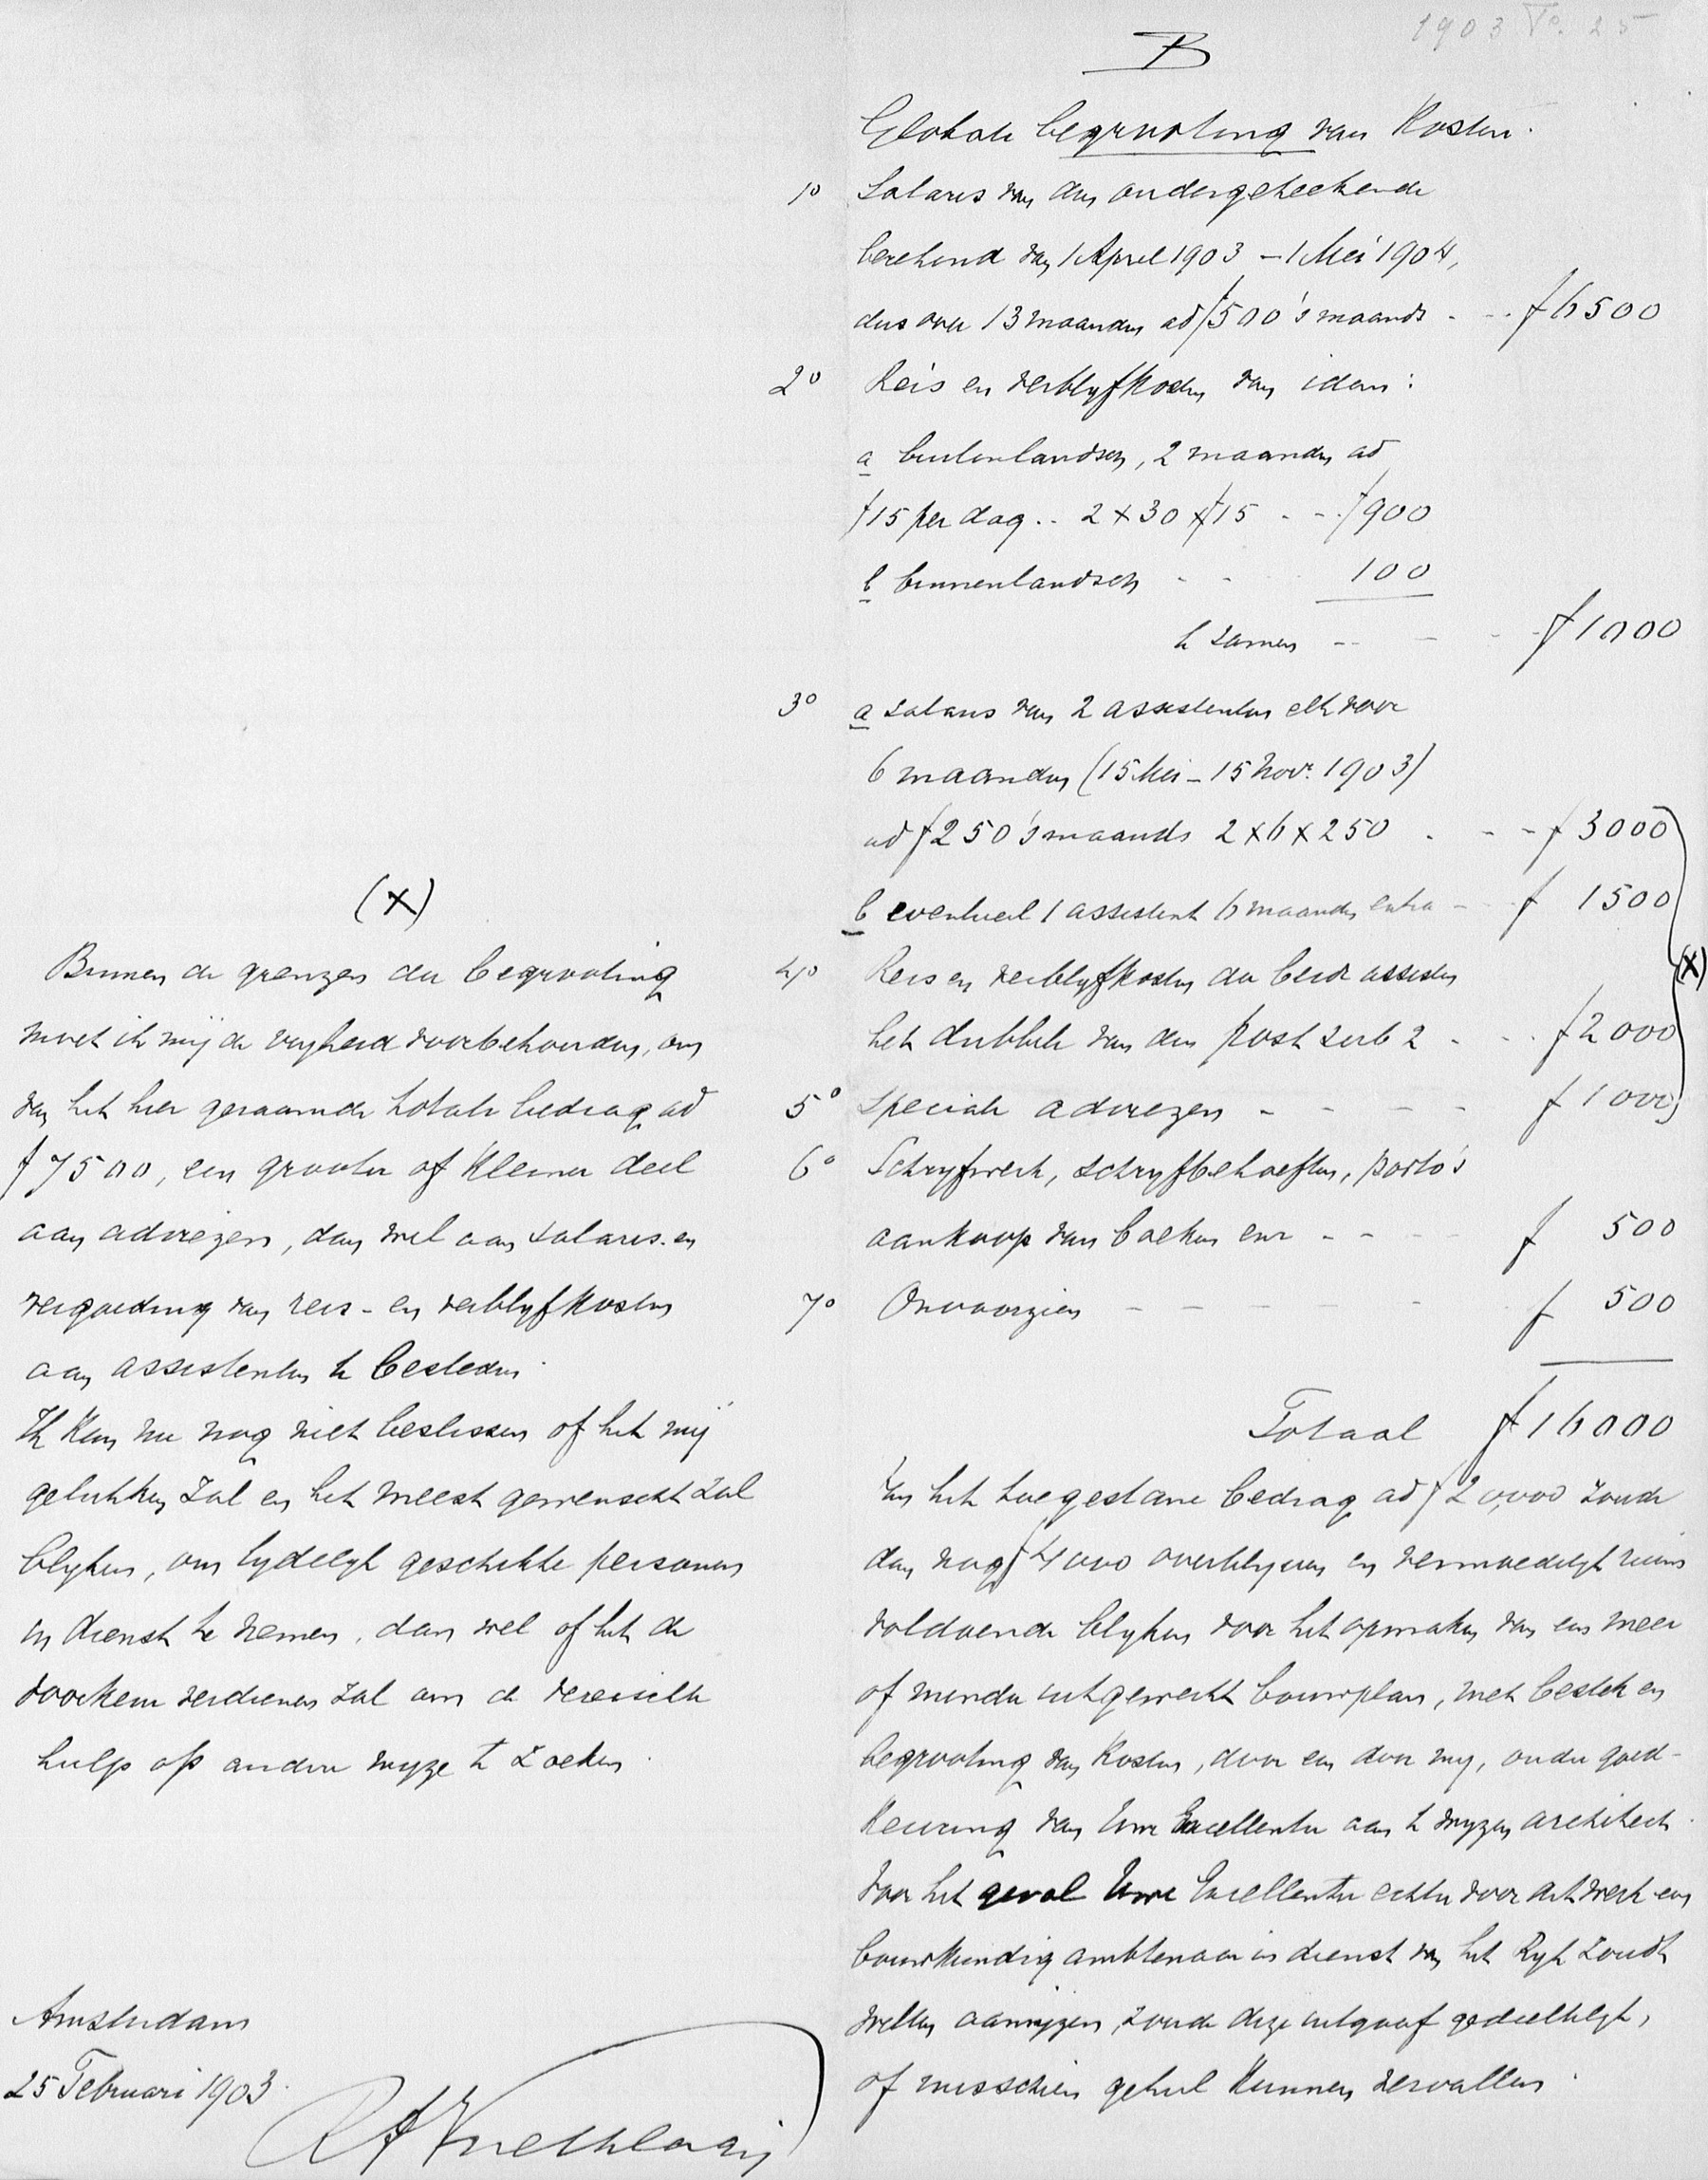 1903 Vo. 25
B
Globale begrooting van Kosten.
1o Salaris van den ondergeteekende
berekend van 1 April 1903 – 1 Mei 1904,
dus over 13 maanden ad f 500 's maands - - . f 6500
2o Reis en verblyfkosten van idem:
a buitenlandsch, 2 maanden ad
f 15 per dag .. 2 x 30 x f 15 - - . f 900
b binnenlandsch - - 100
te zamen - - - - f 1000
3o a salaris van 2 assistenten elk voor
6 maanden (15 Mei – 15 Nov. 1903)
ad f 250 's maands 2 x 6 x 250 . - - f 3000
b eventueel 1 assistent 6 maanden extra - f 1500
4o Reis en verblyfkosten der beide assisten
het dubbele van den post sub 2 - . . f 2000
(x)
5o speciale adviezen - - - - f 1000
6o Schryfwerk, schryfbehoeften, porto's
aankoop van boeken enz - - - f 500
7o Onvoorzien - - - - f 500
Totaal f 16000
Van het toegestane bedrag ad f 20,000 zoude
dan nog f 4000 overblyven en vermoedelyk ruim
voldoende blyken voor het opmaken van een meer
of minder uitgewerkt bouwplan, met bestek en
begrooting van kosten, door een door my, onder goed-
keuring van Uwe Excellentie aan te wyzen architect.
Voor het geval Uwe Excellentie echter voor dit werk een
bouwkundig ambtenaar in dienst van het Ryk zoude
willen aanwyzen, zoude deze uitgaaf gedeeltelyk,
of misschien geheel kunnen vervallen.
(x)
Binnen de grenzen der begrooting
moet ik mij de vryheid voorbehouden, om
van het hier geraamde totale bedrag ad
f 7500, een grooter of kleiner deel
aan adviezen, dan wel aan salaris en
vergoeding van reis- en verblyfkosten
aan assistenten te besteden.
Ik kan nu nog niet beslissen of het mij
gelukken zal en het meest gewenscht zal
blyken, om tydelyk geschikte personen
in dienst te nemen, dan wel of het de
voorkeur verdienen zal om de vereischte
hulp op andere wyze te zoeken.
Amsterdam
25 Februari 1903.